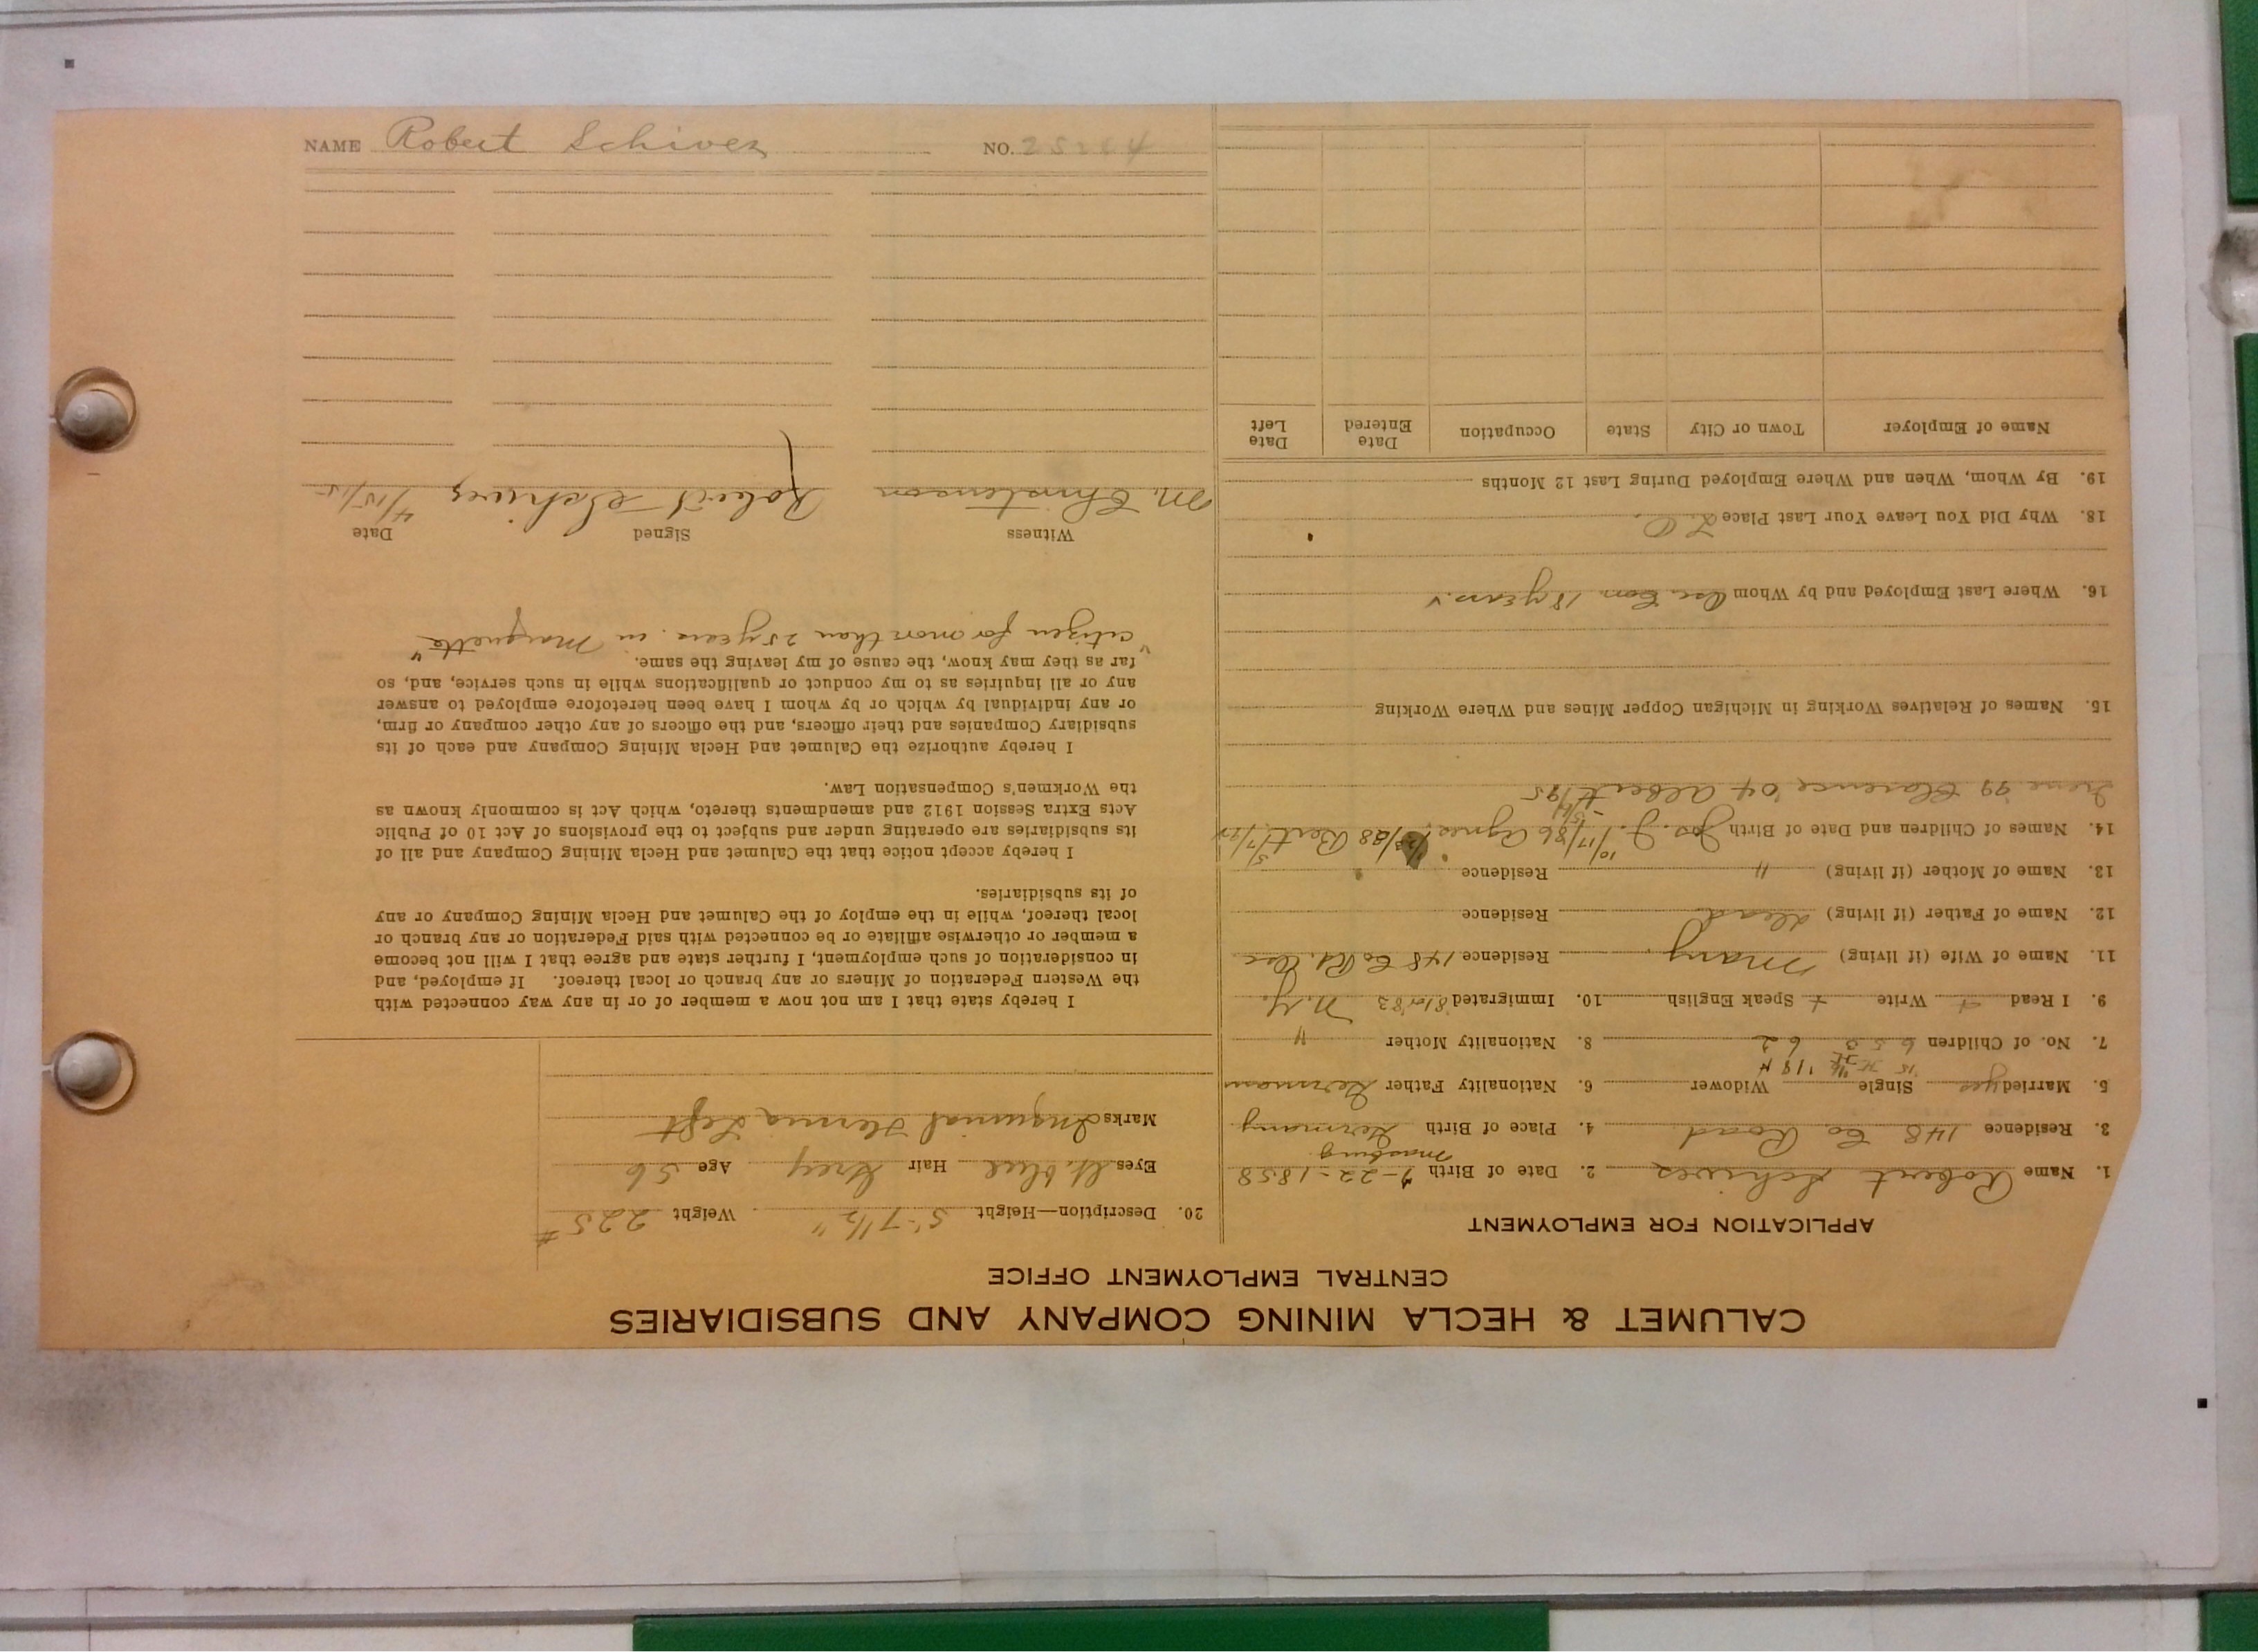 CALUMET & HECLA MINING COMPANY AND SUBSIDIARIES
CENTRAL EMPLOYMENT OFFICE
APPLICATION FOR EMPLOYMENT
1. Name Robert Schives 2. Date of Birth 7-22-1858
3. Residence 148 Co Road 4. Place of Birth Germany
5. Married yes Single Widower 6. Nationality Father German
7. No. of Children 6 8. Nationality Mother "
9. I Read + Write + Speak English 10. Immigrated 81 or 83 N.Y.
11. Name of Wife (if living) Mary Residence 148 Co Rd. Osc
12. Name of Father (if living) dead Residence
13. Name of Mother (if living) " Residence
14. Names of Children and Date of Birth Jos. J. 10/17/86 Agnes 88 Bert
Irene 99 Clarence '04 Albert 95
15. Names of Relatives Working in Michigan Copper Mines and Where Working
16. Where Last Employed and by Whom Osc. Con. 18 years.
18. Why Did You Leave Your Last Place L.O.
19. By Whom, When and Where Employed During Last 12 Months
Name of Employer Town or City State Occupation Date Entered Date Left
20. Description—Height 5' 7 1/2" Weight 225#
Eyes lt. blue Hair Grey Age 56
Marks Inguinal Hernia Left
I hereby state that I am not now a member of or in any way connected with
the Western Federation of Miners or any branch or local thereof. If employed, and
in consideration of such employment, I further state and agree that I will not become
a member or otherwise affiliate or be connected with said Federation or any branch or
local thereof, while in the employ of the Calumet and Hecla Mining Company or any
of its subsidiaries.
I hereby accept notice that the Calumet and Hecla Mining Company and all of
its subsidiaries are operating under and subject to the provisions of Act 10 of Public
Acts Extra Session 1912 and amendments thereto, which Act is commonly known as
the Workmen's Compensation Law.
I hereby authorize the Calumet and Hecla Mining Company and each of its
subsidiary Companies and their officers, and the officers of any other company or firm,
or any individual by which or by whom I have been heretofore employed to answer
any or all inquiries as to my conduct or qualifications while in such service, and, so
far as they may know, the cause of my leaving the same.
"citizen for more than 25 years. in Marquette"
Witness Signed Date
M. Christenson Robert Schives 4/15/15
NAME Robert Schives NO. 25224